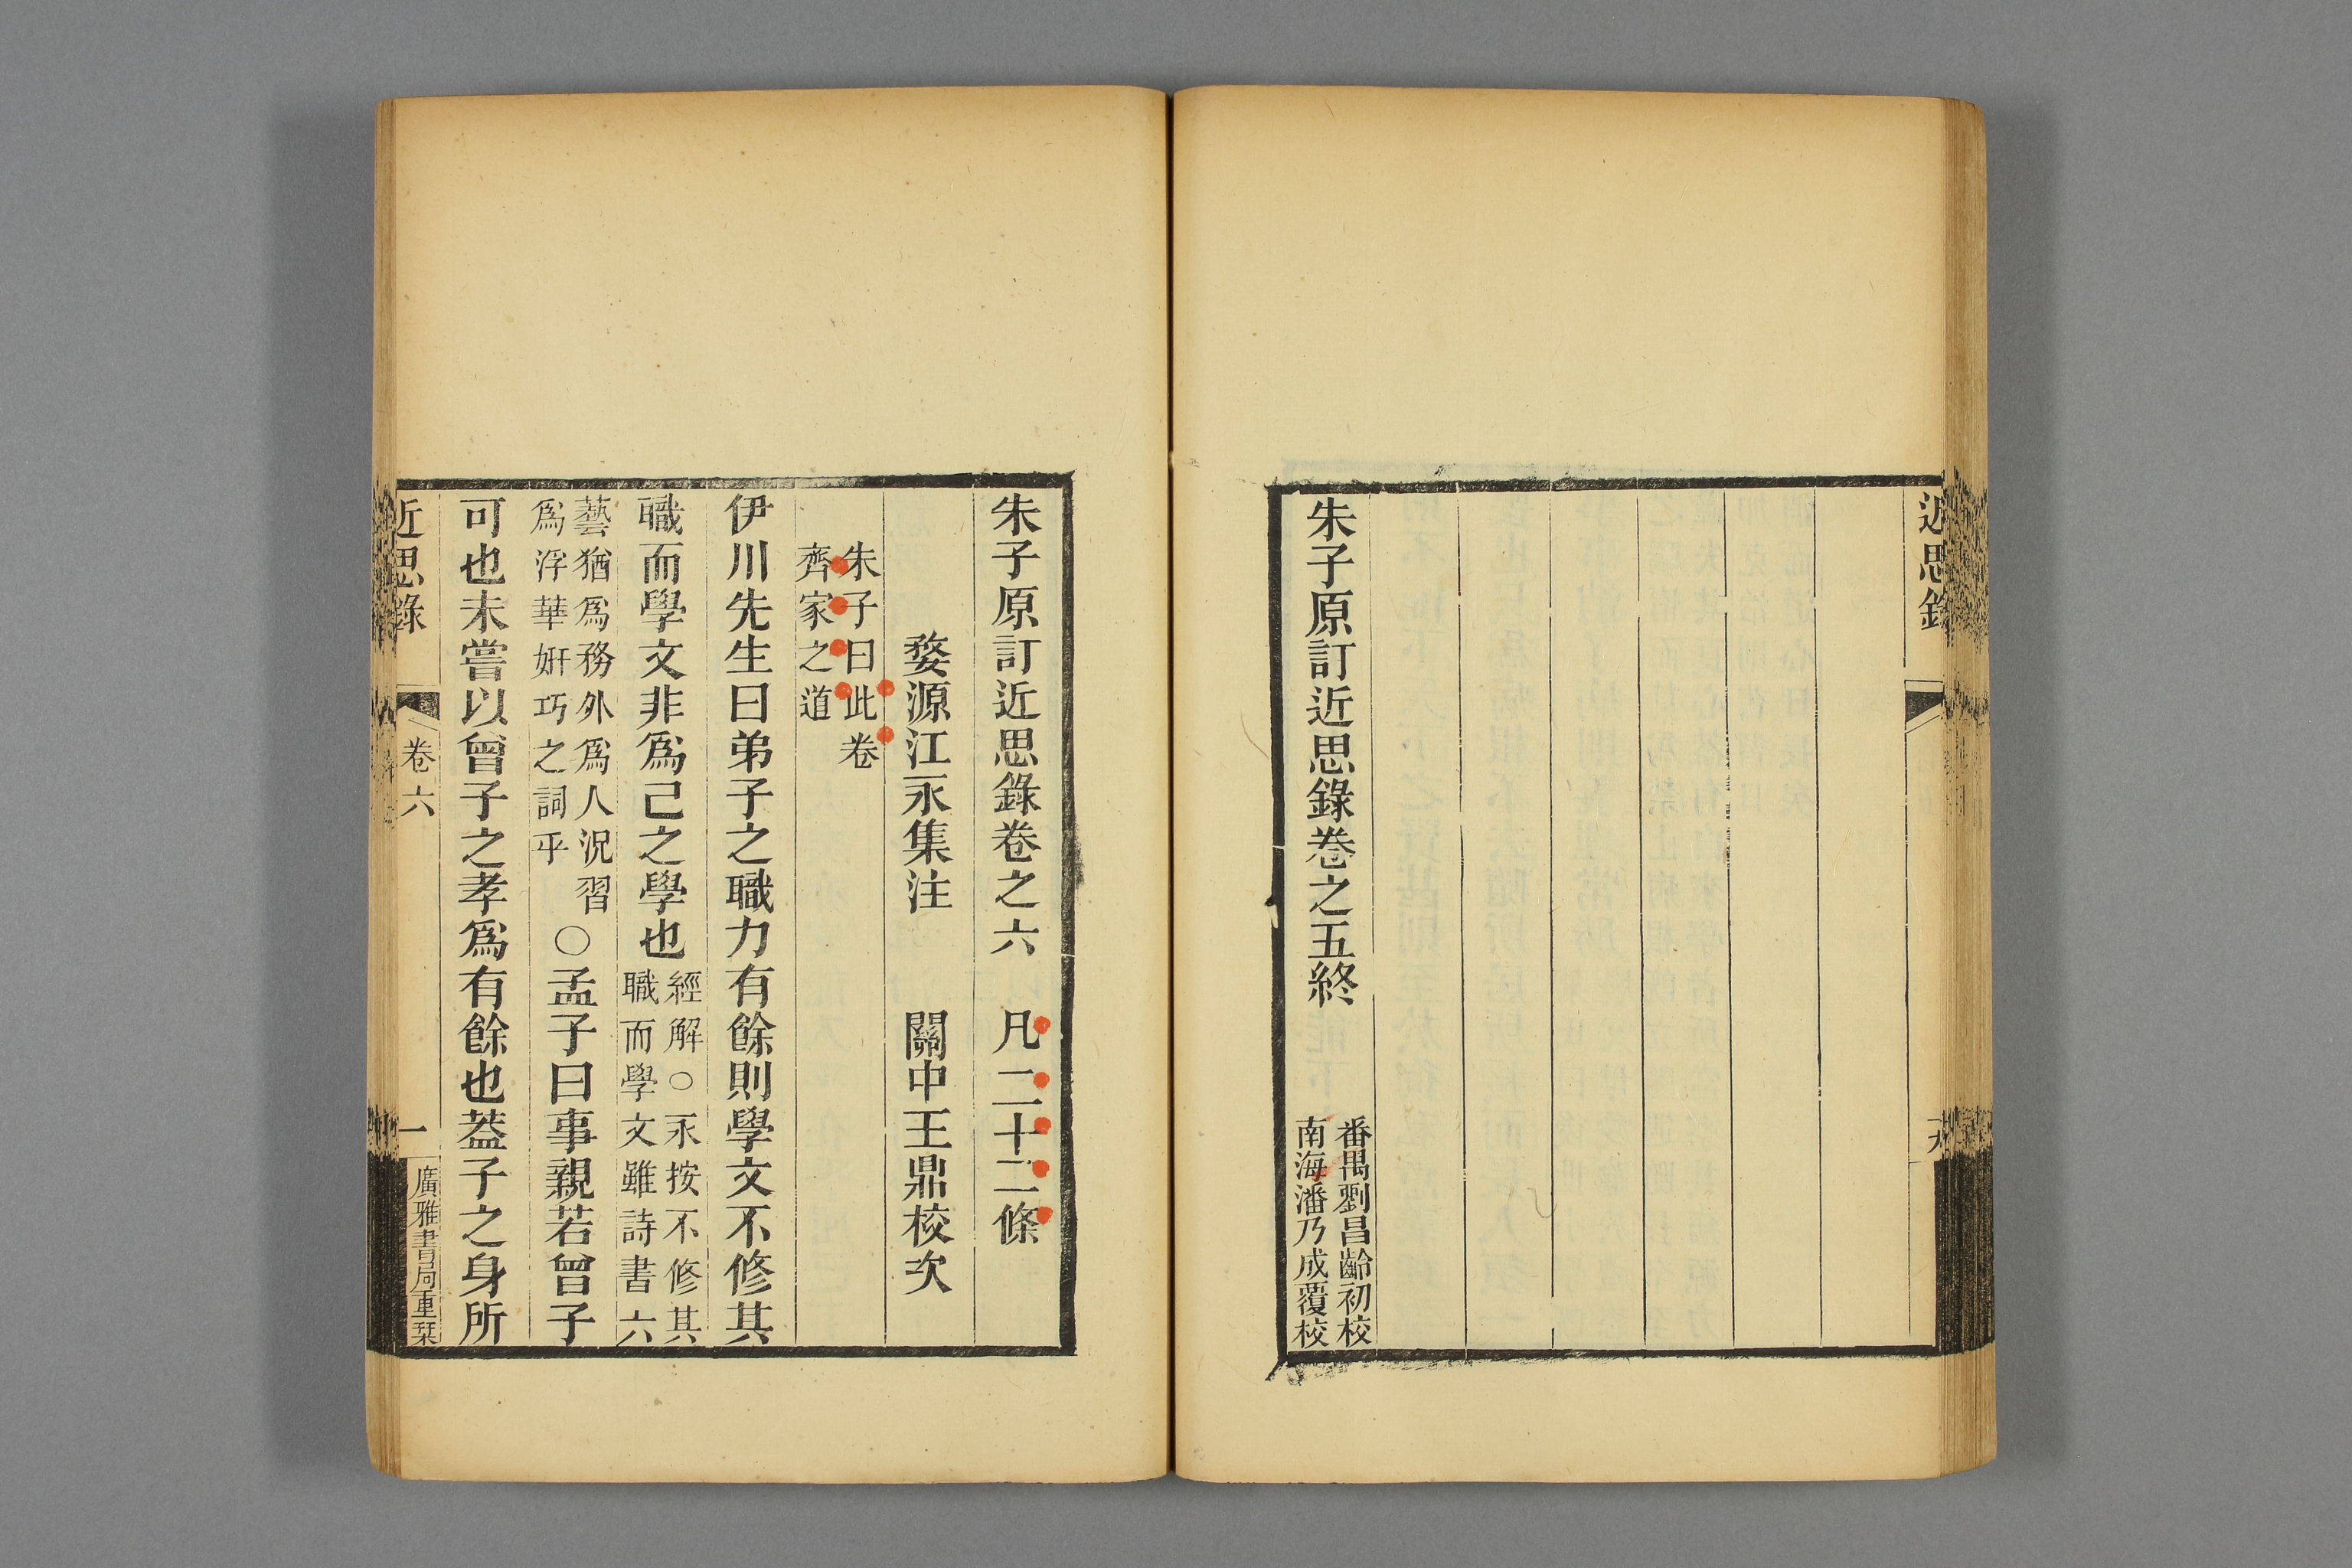 近思錄
朱子原訂近思錄卷之五終
番禺劉昌齡初校
南海潘乃成覆校
朱子原訂近思錄卷之六　凡二十二條
婺源江永集注　關中王鼎校次
朱子曰此卷
齊家之道
伊川先生曰弟子之職力有餘則學文不修其
職而學文非爲己之學也
經解○永按不修其
職而學文雖詩書六
藝猶爲務外爲人況習
爲浮華姸巧之詞乎
○孟子曰事親若曾子
可也未嘗以曾子之孝爲有餘也葢子之身所
近思錄　卷六　一　廣雅書局重栞